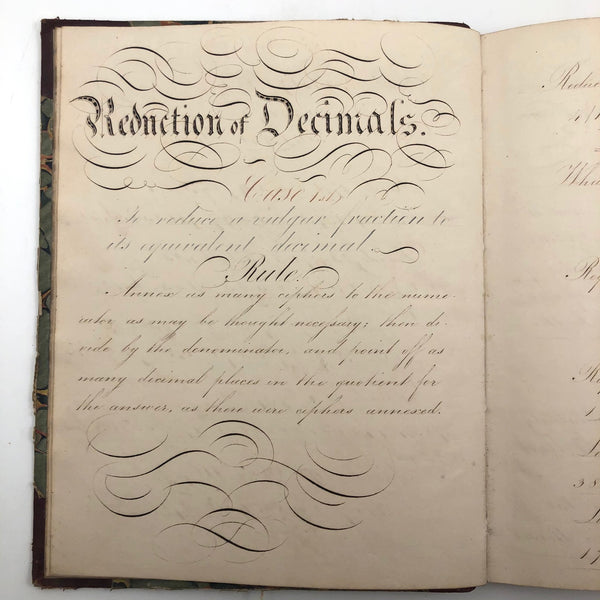 Reduction of Decimals.
Case 1st
To reduce a vulgar fraction to
its equivalent decimal.
Rule.
Annex as many ciphers to the nume-
rator as may be thought necessary; then di-
vide by the denominator, and point off as
many decimal places in the quotient for
the answer, as there were ciphers annexed.
Reduc
Wha
Re